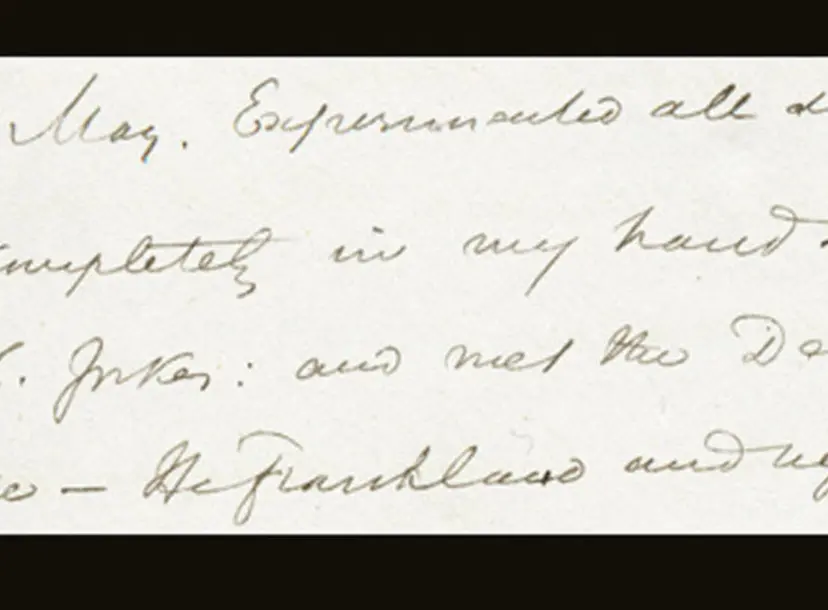 May. Experimented all d
ompletely in my hands
Jukes: and met the De
— He Frankland and my